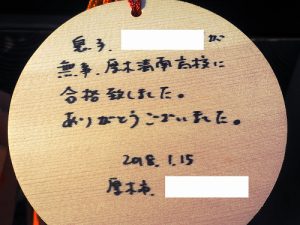 息子、 が
無事、厚木清南高校に
合格致しました。
ありがとうございました。
2018.1.15
厚木市、